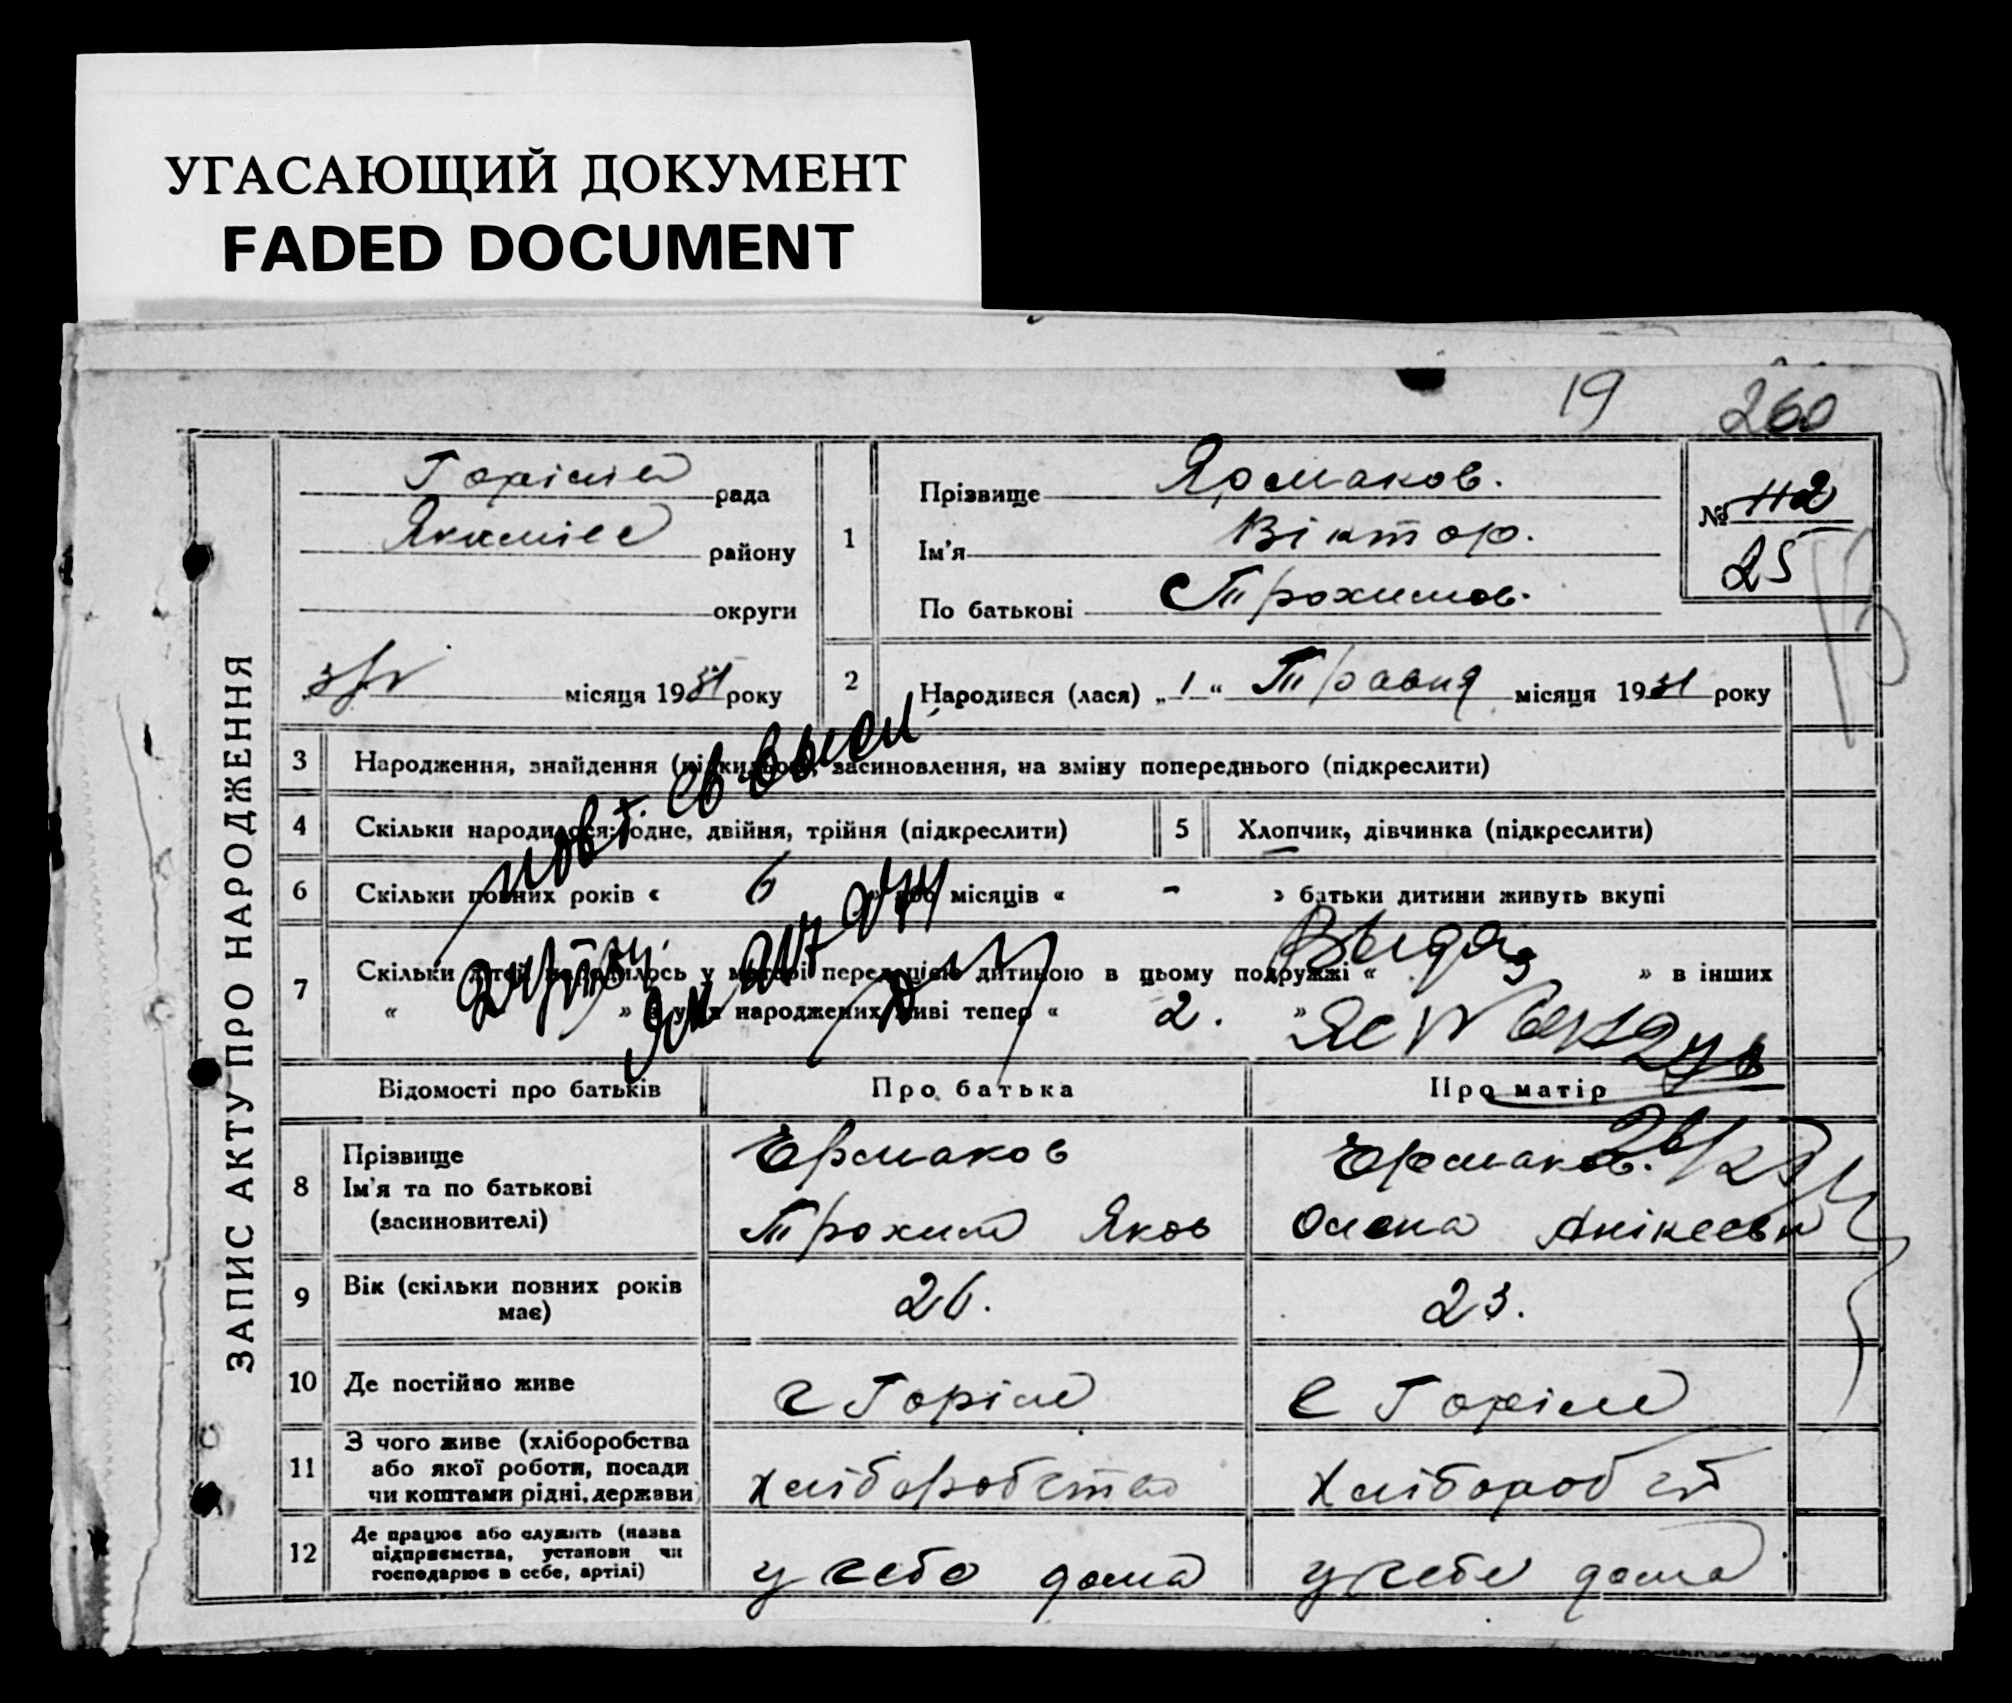 УГАСАЮЩИЙ ДОКУМЕНТ
FADED DOCUMENT
19
260
ЗАПИС АКТУ ПРО НАРОДЖЕННЯ
рада
району
округи
місяця 1931 року
1
Прізвище Ярмаков.
Ім'я Віктор.
По батькові Трохимов.
№ 112
25
2
Народився (лася) „1“ Травня місяця 1931 року
3 Народження, знайдення (підкидьок), засиновлення, на зміну попереднього (підкреслити)
4 Скільки народилося: одне, двійня, трійня (підкреслити)
5 Хлопчик, дівчинка (підкреслити)
6 Скільки повних років « 6 » або місяців « - » батьки дитини живуть вкупі
7 Скільки дітей народилось у матері перед цією дитиною в цьому подружжі « » в інших
« » з усіх народжених живі тепер « 2. »
повт. св-во
Выдан
Відомості про батьків
Про батька
Про матір
8 Прізвище
Ім'я та по батькові
(засиновителі)
Ермаков
Трохим Яков
Ермаков.
Олена Анікеевн
9 Вік (скільки повних років має)
26.
23.
10 Де постійно живе
с Горіле
с Горіле
11 З чого живе (хліборобства
або якої роботи, посади
чи коштами рідні, держави)
хліборобство
хлібороб
12 Де працює або служить (назва
підприємства, установи чи
господарює в себе, артілі)
у себе дома
у себе дома